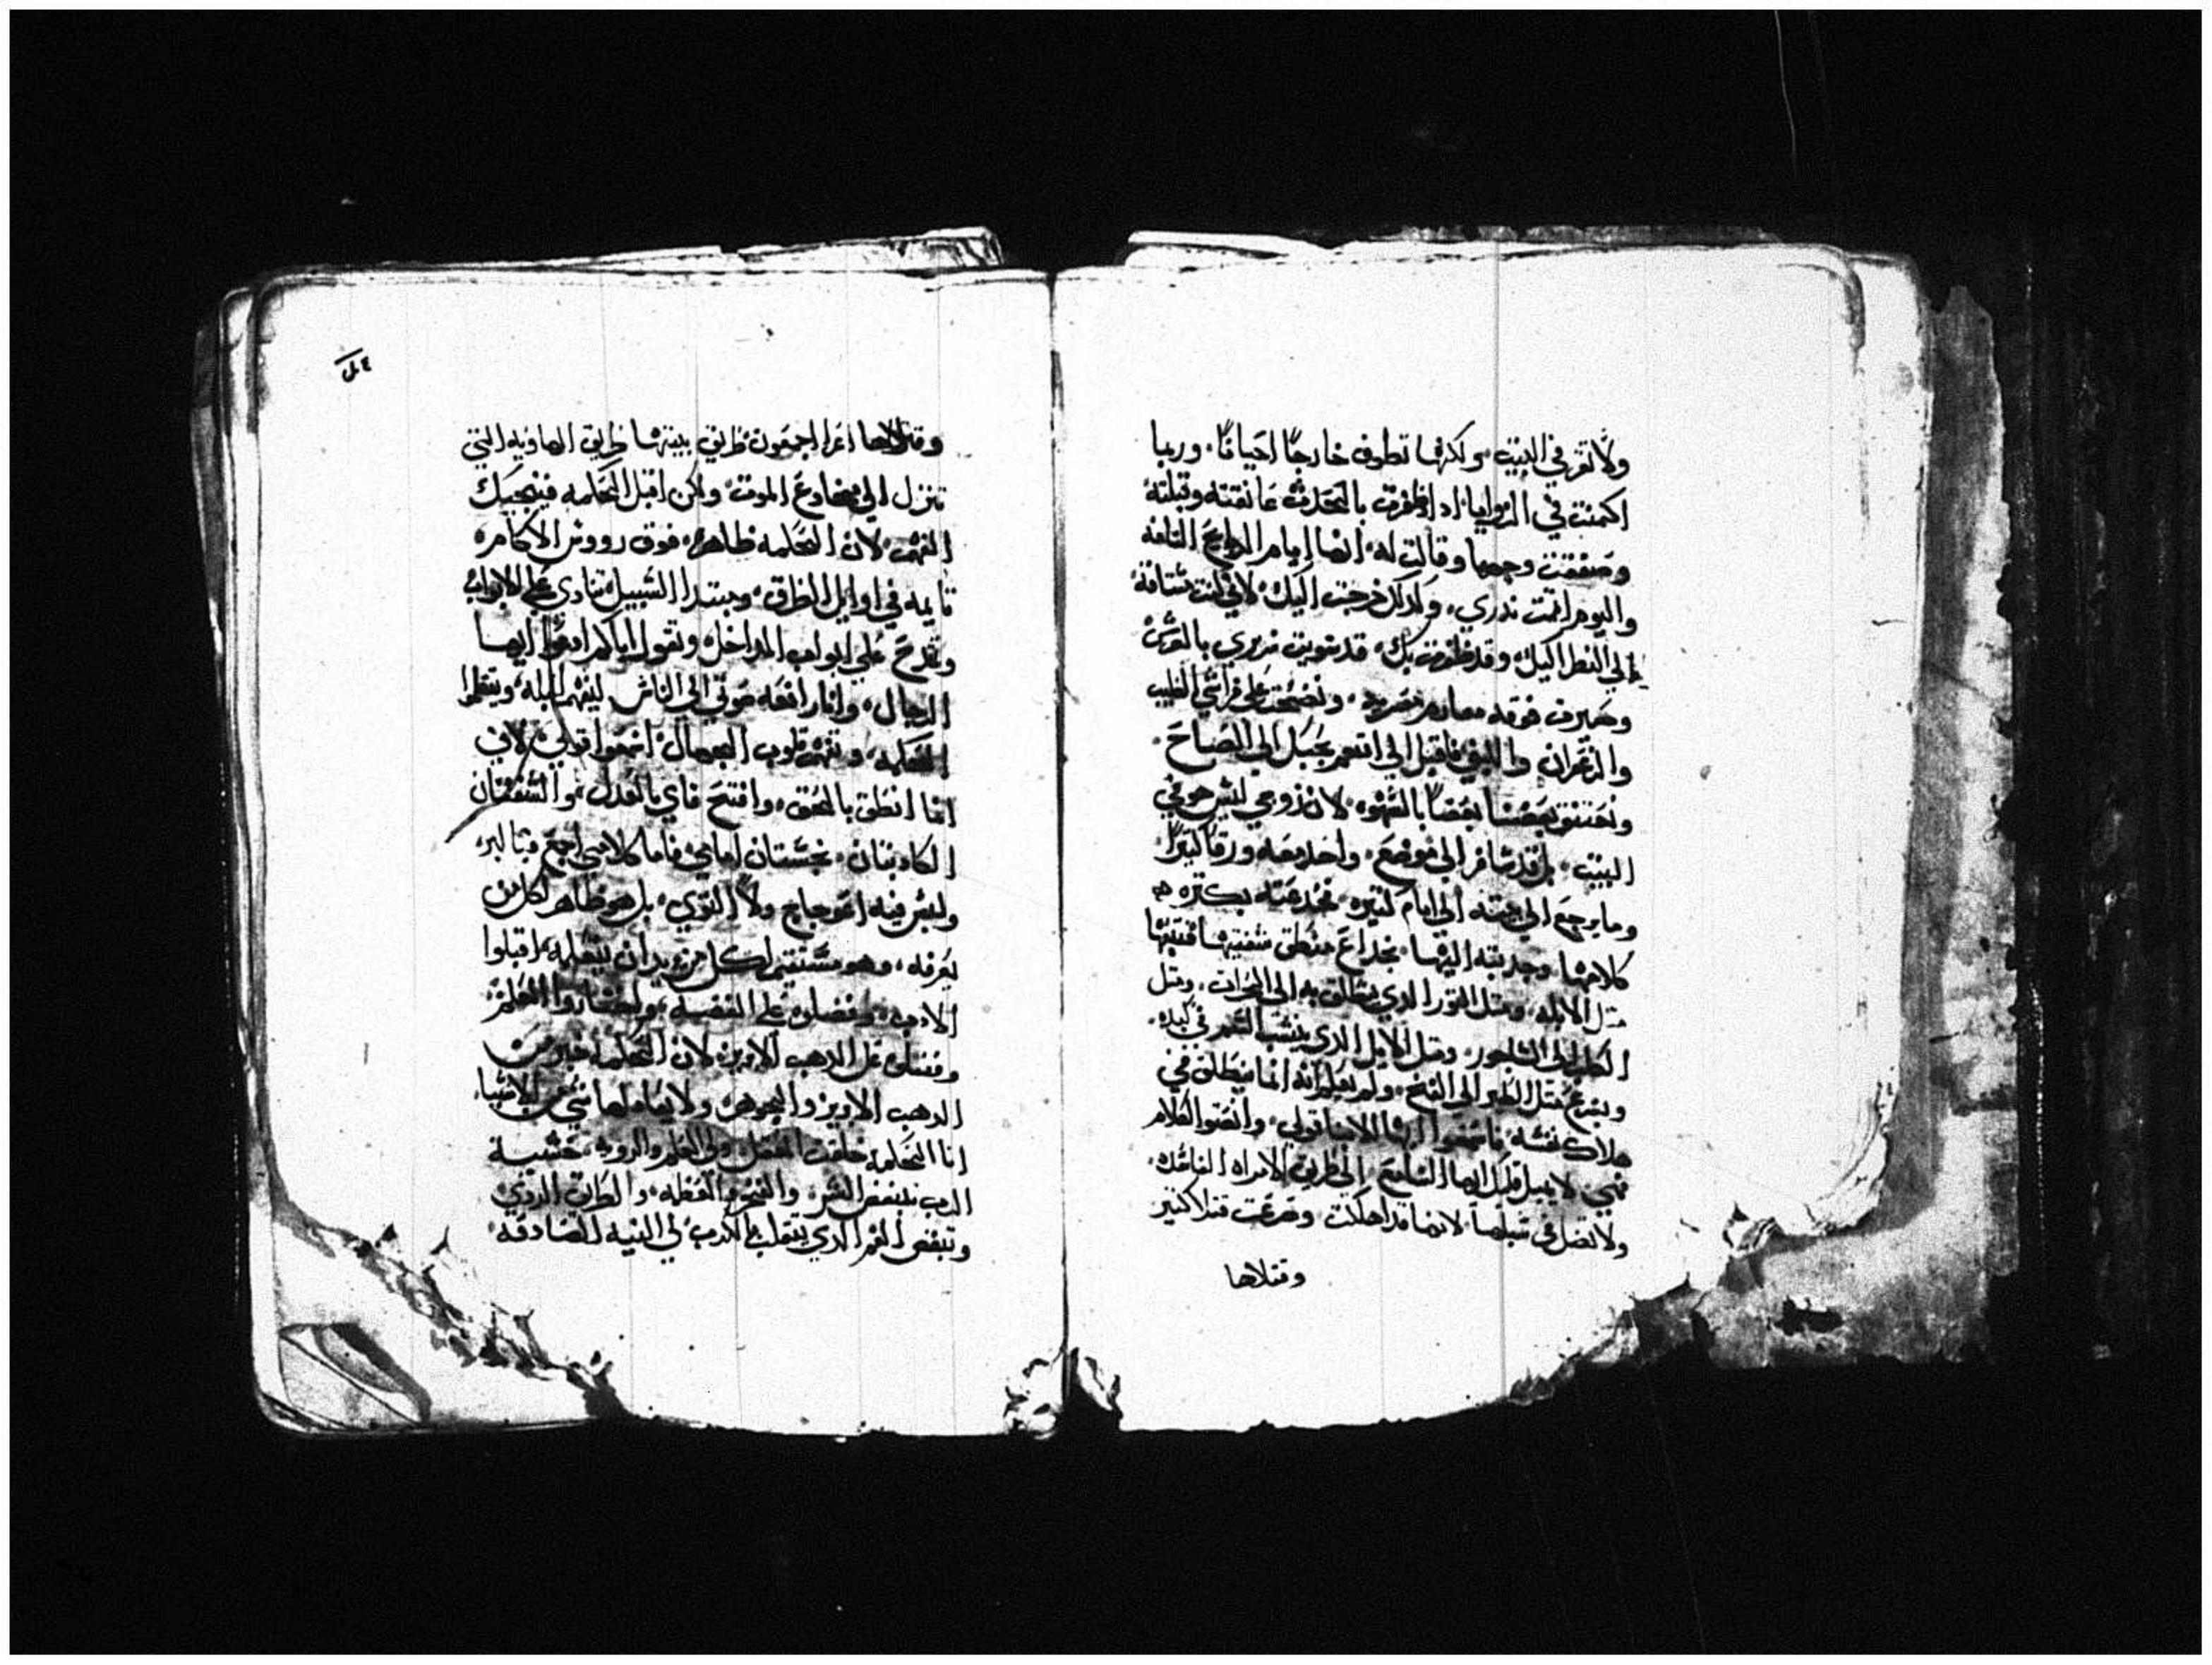 ولا تقر في البيت ولكنها تطوف خارجا احيانا، وربما
اكمنت في الزوايا، اذا ظفرت بالحدث عانقته وقبلته
وصفقت وجهها وقالت له، انها ايام الدبايح التامة
واليوم اتممت ندري، ولذلك خرجت اليك، لاني كنت مشتاقة
الي النظر اليك، وقد ظفرت بك، قد سويت سريري بالفرش
وصيرت فوقه مصريه، ونضحت علي فراشي الطيب
والزعفران، فاقبل الي لنتمرغ الي الصباح.
بعضنا بعضا بالشهوه، لان زوجي ليس هو في
البيت، بل قد سافر الي موضع، واخد معه ورقا كبيرا
وما يرجع الي بيته الي ايام كتيره، فخدعته بكتره
كلامها وجدبته اليها، بخداع منطق شفتيها فتبعها
متل الابله، ومتل التور الدي ينطلق به الي، ومتل
الكلب الي الساجور، ومتل الايل الدي ينشب السهم في كبده،
ويسرع متل الطير الي الفخ، ولم يعلم انه انما ينطلق في
هلاك نفسه، فاسمعوا ايها الابنا قولي، وانصتوا لكلام
فمي، لا يميل قلبك ايها السامع الي طريق الامراه الفاسده،
ولا تضل في سبلها، لانها قد اهلكت وصرعت قتلا كتير
وقتلاها
وقتلاها اعزا اجمعون، طريق بيتها طريق الهاويه التي
تنزل الي مخادع الموت، ولكن اقبل الحكمه فيجيبك
الفهم، لان الحكمه ظاهره، فوق رووس الاكام
قايمه في اوايل الطرق، ومبتدا السبيل، تنادي علي الابواب
وتمدح علي ابواب المداخل، وتقول اياكم ادعوا ايها
الرجال، وانا رافعه صوتي الي الناس ليفهم البله، ويتعلموا
الحكمه، وتفهم قلوب الجهال، اسمعوا قولي، لاني
انما انطق بالحق، وافتح فاي بالعدل، والشفتان
الكادبتان، نجستان امامي، فاما كلامي اجمع فبالبر،
وليس فيه اعوجاج ولا التوي، بل هو ظاهر لكل من
يعرفه، وهو مستقيم لكل من يريد ان يتعلمه، اقبلوا
الادب، وفضلوه علي الفضه، واختاروا العلم
وفضلوه علي الدهب الابريز، لان الحكمه خير من
الدهب الابريز والجوهر، ولا يعادلها شي من الاشيا،
انا الحكمه خلقت العقل، ولي العلم والرويه، خشية
الرب تبغض الشر، والفخر والعظمه، والطريق الردي
وتبغض الفم الدي يتقلب علي الكدب، لي النيه الصادقه،